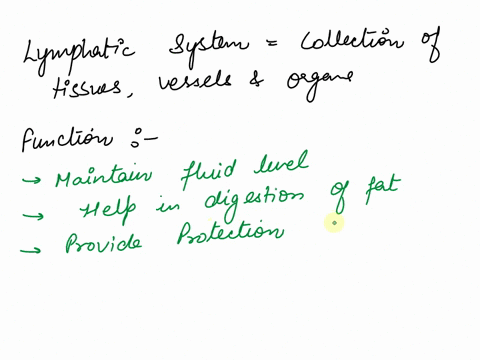 Lymphatic System = Collection of
tissues, vessels & organs
Function :-
→ Maintain fluid level
→ Help in digestion of fat
→ Provide Protection